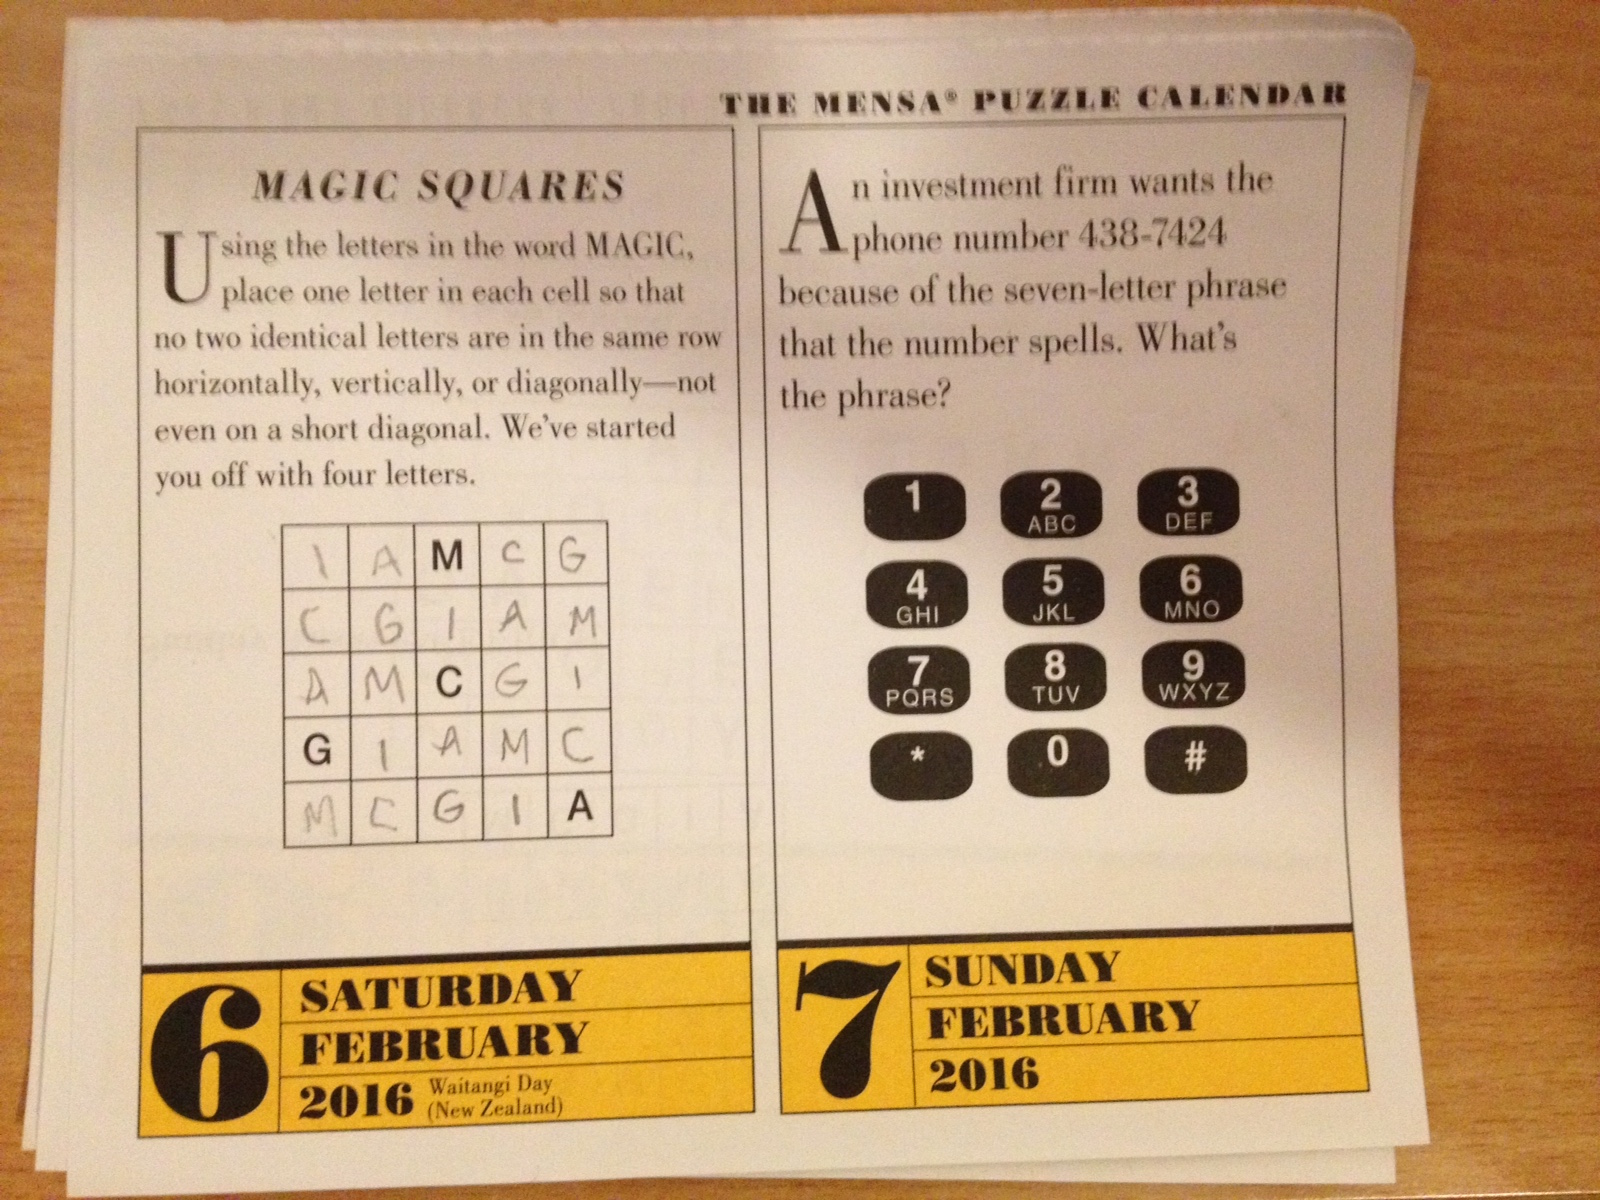 THE MENSA® PUZZLE CALENDAR
MAGIC SQUARES
Using the letters in the word MAGIC,
place one letter in each cell so that
no two identical letters are in the same row
horizontally, vertically, or diagonally—not
even on a short diagonal. We've started
you off with four letters.
I A M C G
C G I A M
A M C G I
G I A M C
M C G I A
6
SATURDAY
FEBRUARY
2016 Waitangi Day
(New Zealand)
An investment firm wants the
phone number 438-7424
because of the seven-letter phrase
that the number spells. What's
the phrase?
1 2 3
ABC DEF
4 5 6
GHI JKL MNO
7 8 9
PQRS TUV WXYZ
* 0 #
7
SUNDAY
FEBRUARY
2016